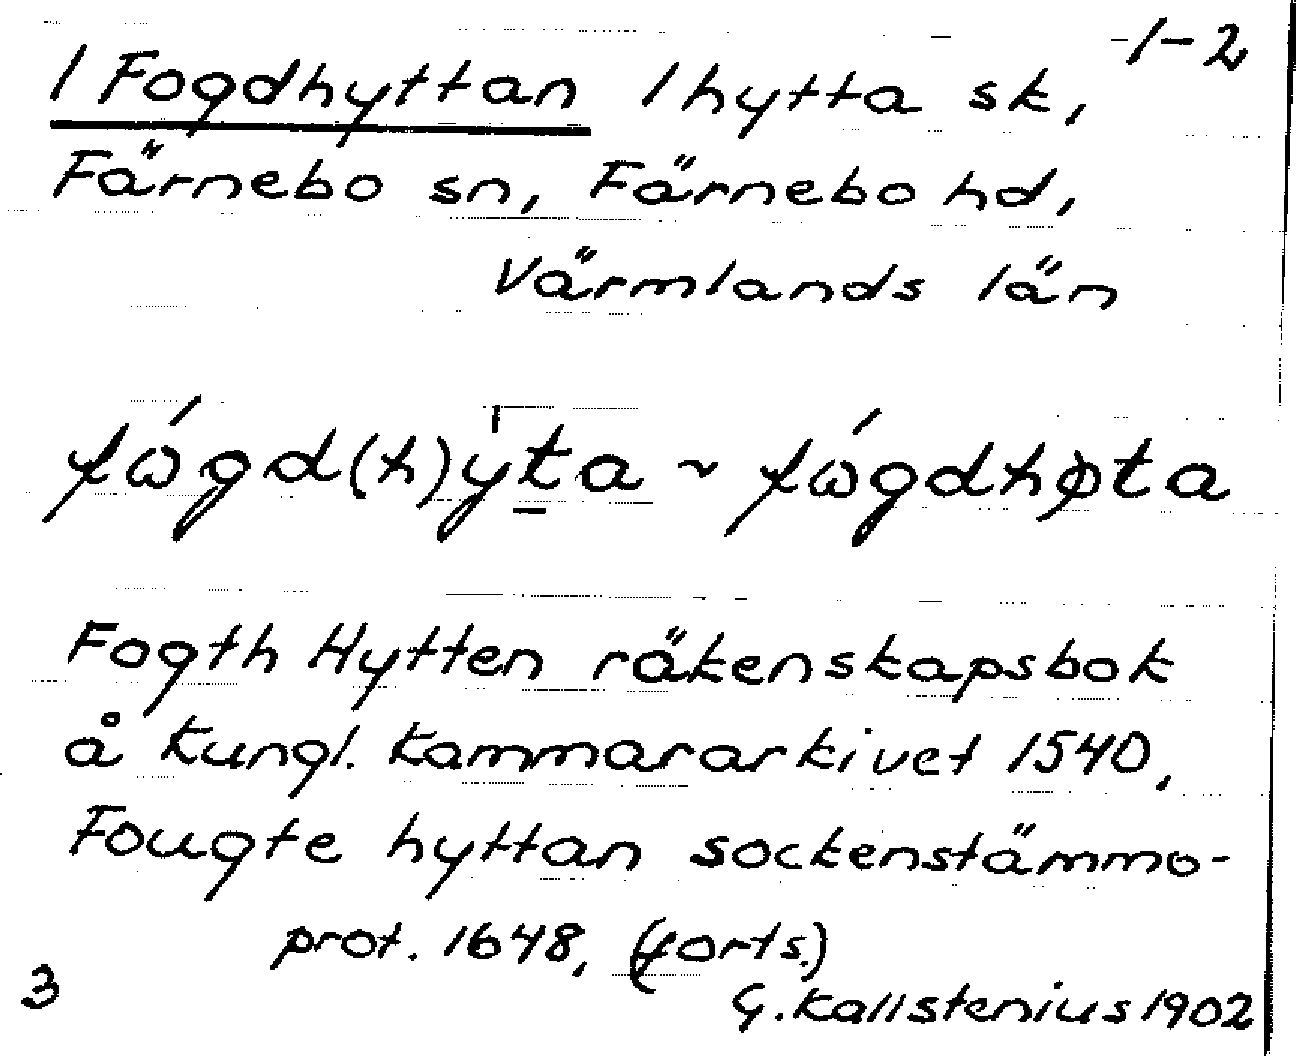 -1-2
1 Fogdhyttan 1 hytta sk,
Färnebo sn, Färnebo hd,
Värmlands län
fώgd(h)y̍ta ~ fώgdhφta
Fogth Hytten räkenskapsbok
å Kungl. Kammararkivet 1540,
Fougte hyttan sockenstämmo-
prot. 1648, (forts.)
3
G. Kallstenius 1902